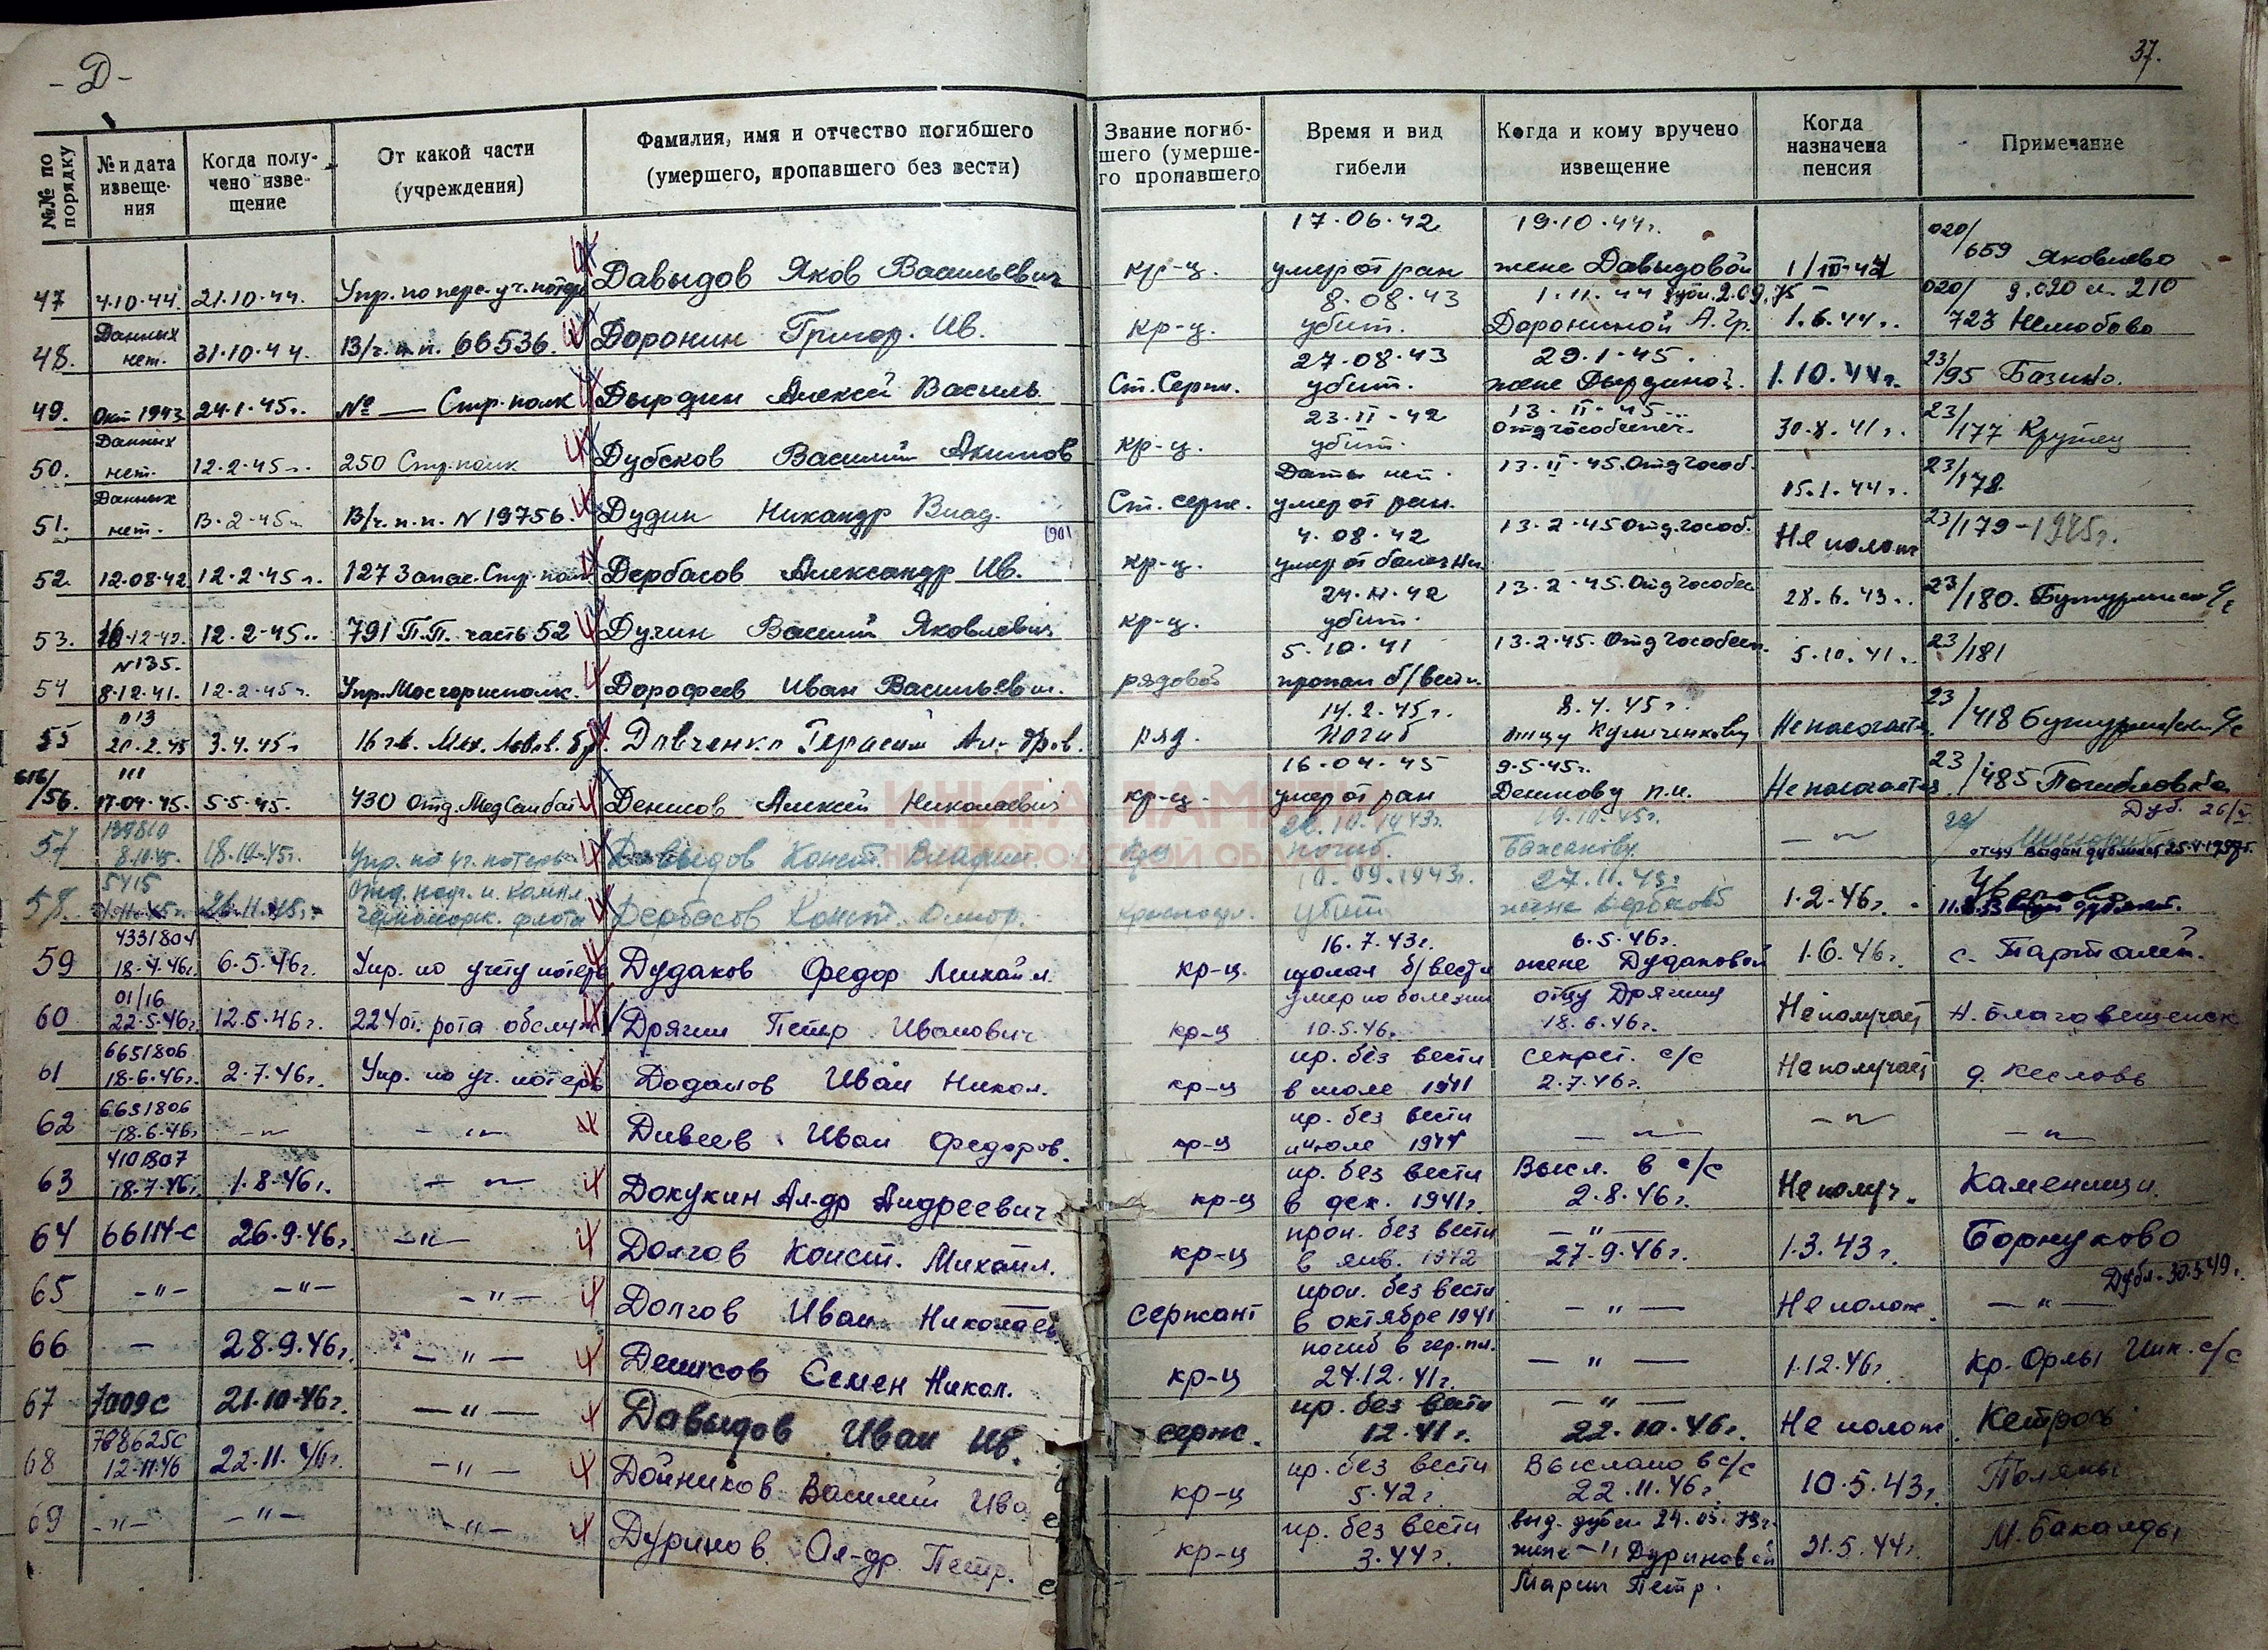 - Д -
37.
№№ по порядку
№ и дата извеще-
ния
Когда полу-
чено изве-
щение
От какой части
(учреждения)
Фамилия, имя и отчество погибшего
(умершего, пропавшего без вести)
Звание погиб-
шего (умерше-
го пропавшего)
Время и вид
гибели
Когда и кому вручено
извещение
Когда
назначена
пенсия
Примечание
17.06.42 19.10.44г. 020/
47 4.10.44. 21.10.44. Упр. по перс. уч. потерь Давыдов Яков Васильевич кр-ц. умер от ран жене Давыдовой 1/III-42 659 Яковлево
Данных 8.08.43 1.11.44 дубл. 2.09.75 020/ д. 020 л. 210
48. нет. 31.10.44. В/ч. п.п. 66536. Доронин Григор. Ив. кр-ц. убит. Дорониной А. Гр. 1.6.44г. 723
27.08.43 29.1.45. 23/
49. Окт 1943 24.1.45г. № — Стр. полк Дырдин Алексей Василь. Ст. Серж. убит. жене Дырдиной. 1.10.44г. 95 Базино.
Данных 23.II-42 13.II-45 23/
50. нет. 12.2.45г. 250 Стр. полк Дубсков Василий Акимов кр-ц. убит. Отд гособеспеч. 30.8.41г. 177 Крутец
Данных Даты нет. 13.II-45. Отд гособ. 23/
51. нет. 13.2-45г. В/ч. п.п. N 19756. Дудин Никандр Влад. Ст. серж. умер от ран. 15.1.44г. 178
1901 4.08.42 13.2.45 Отд. гособ. 23/179-1925г.
52. 12.08.42 12.2.45г. 127 Запас. Стр. полк Дербасов Александр Ив. кр-ц. умер от болезни Не полож
24.II.42 13.2.45. Отд гособес 28.6.43.. 23/180.
53. 16-12-42. 12.2-45.. 791 П.П. часть 52 Дугин Василий Яковлевич кр-ц. убит.
N135. 5.10.41 13.2.45. Отд гособесп. 5.10.41г. 23/181
54 8.12.41. 12.2.45г. Упр. Мосгорисполк. Дорофеев Иван Васильевич. рядовой пропал б/вести.
п13 14.2.45г. 8.4.45г. 23
55 20.2.45 3.4.45г. 16 гв. Мех. Львов. бр. Довченко Герасим Ал-дров. ряд. погиб отцу Не полагается /418
616/ 111 16.04.45 9.5.45г. 23
56. 17.04.45. 5.5.45. 430 Отд. Мед Сан бат Денисов Алексей Николаевич кр-ц. умер от ран Денисову п.и. Не полагается /485 Погибловка
57 139810 19.10.45г. Дуб. 26/
8.10.45. 18.10.45г. Упр. по уч. потерь Давыдов Конст. Владим. погиб. Бажанову — " — отцу выдан дубликат 25.4.1957г.
58. 5415 Отд. 10.09.1943г. 27.11.45г.
26.11.45г. черноморск. флота Дербасов Конст. Виктор. краснофл. убит жене Дербасов 1.2.46г.
4331804 16.7.43г. 6.5.46г.
59 18.4.46г. 6.5.46г. Упр. по учету потерь Дудаков Федор Михайл. кр-ц. пропал б/вести жене Дудаковой 1.6.46г. с. Тарталей.
01/16 умер по болезни отцу Дрягину
60 22.5.46г. 12.6.46г. 224 от. рота обслуж Дрягин Петр Иванович кр-ц 10.5.46. 18.6.46г. Не получает Н. Благовещенск
6651806 пр. без вести секрет. с/с
61 18.6.46г. 2.7.46г. Упр. по уч. потерь Додонов Иван Никол. кр-ц в июле 1941 2.7.46г. Не получает д. Кеслово
6651806 пр. без вести
62 18.6.46г — " — — " — Дивеев Иван Федоров. кр-ц июле 1944 — " — — " — — " —
4101807 пр. без вести Высл. в с/с
63 18.7.46г. 1.8.46г. — " — Докукин Ал-др Андреевич кр-ц в дек. 1941г. 2.8.46г. Не получ. Каменищи.
64 66114-с 26.9.46г. — " — Долгов Конст. Михайл. кр-ц проп. без вести — " — 1.3.43г. Борнуково
в янв. 1942 27.9.46г.
Дубл. 30.5.49г.
65 — " — — " — — " — Долгов Иван Николаев сержант проп. без вести — " — Не полож. — " —
в октябре 1941
66 — 28.9.46г. — " — Денисов Семен Никол. кр-ц погиб в гер. пл. — " — 1.12.46г. Кр. Орлы Инк. с/с
24.12.41г.
67 7009с 21.10.46г. — " — Давыдов Иван Ив. серж. пр. без вести — " — Не полож. Кетрось
12.41г. 22.10.46г.
788625с пр. без вести Выслано в с/с
68 12.11.46 22.11.46г. — " — Дойников Василий Ива кр-ц 5.42г. 22.11.46г. 10.5.43г. Поляны
69 — " — — " — — " — Дуринов Ал-др. Петр. кр-ц пр. без вести выд. дубл. 24.05.73г. 21.5.44г. М. Бакалды
3.44г. жене — " Дуриновой
Марии Петр.
КНИГА ПАМЯТИ
НИЖЕГОРОДСКОЙ ОБЛАСТИ